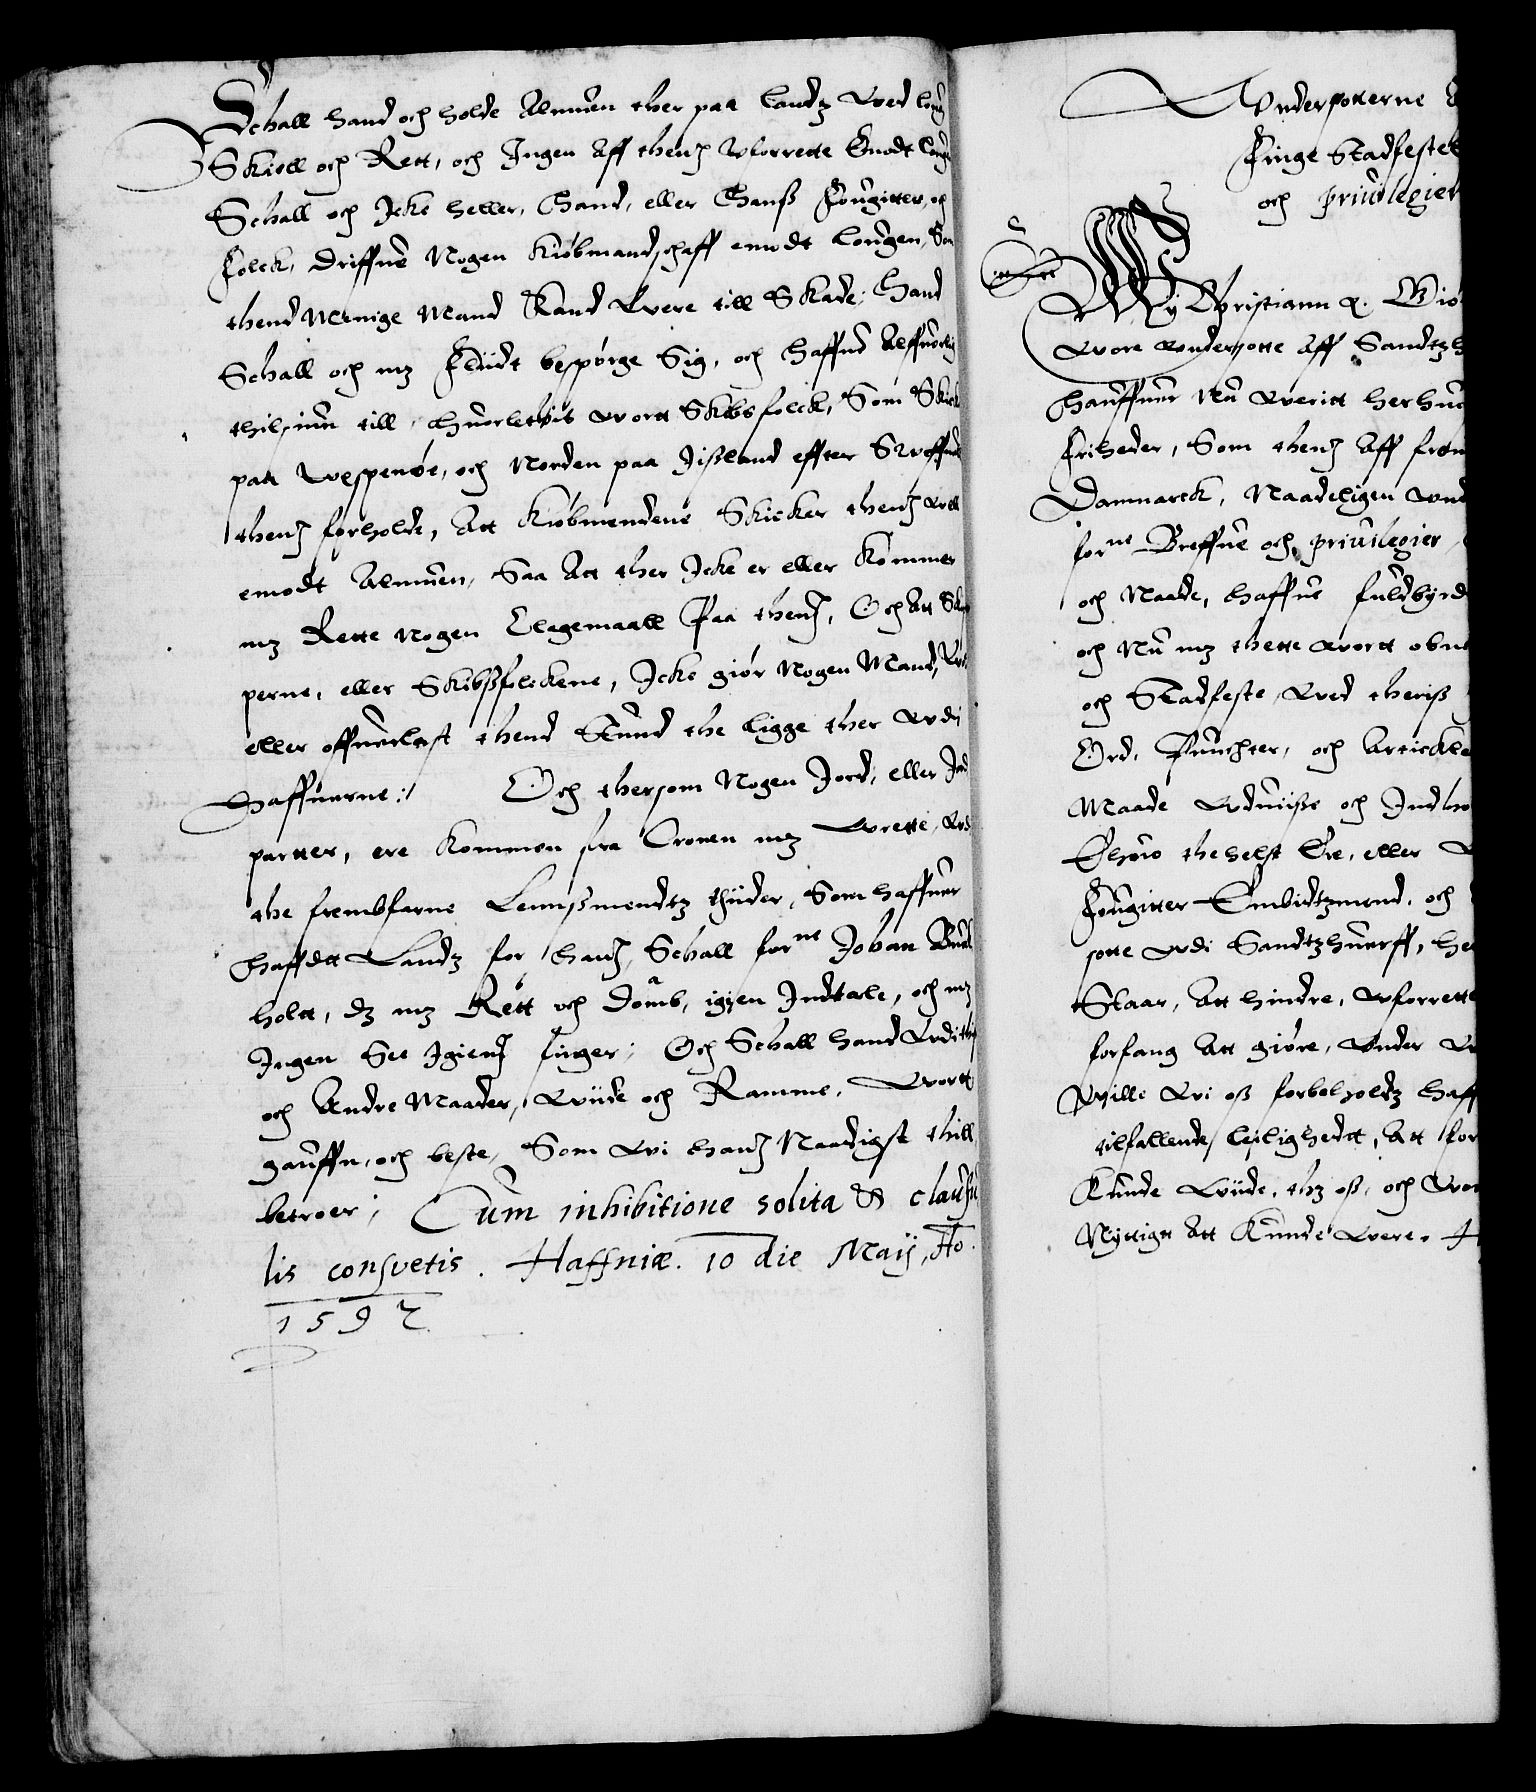 Schall hand och holde Almuen ther paa Landz wed loug
Skiell och Rett, och Ingen Aff thenn wforrette Emodt loug
Schall och Icke heller, hand, eller Hanß Fougitter, och
Folck, driffue Nogen Kiøbmandschaff emodt lougen, Som
thend Menige Mand Kand were till Skade; Hand
Schall och mz Fliidt bespørge Sig, och haffue Alffuorlig
thilsiun till, huorledis wortt Skibsfolck, Som Skickes
paa Wespenøe, och Norden paa Jißland effter Swoffuel
thenn forholde, Att Kiøbmendene Skicker thenn well
emodt Almuen, Saa Att ther Icke er eller Kommer
mz Rette nogen Clagemaall Paa thenn, Och Att Skip
perne, eller Skibßfolckene, Icke giør Nogen Mand, Wr
eller offuerlast thend Stund the ligge ther wdi
Haffuerne; Och thersom Nogen Jord, eller Jord
partter, ere Kommen fra Cronen mz Wrette, wdi
the frembfarne Lennßmendtz thiider, Som haffuer
Haffdtt Landz for hann, Schall forne Johan Buck
holtt, dz mz Rett och domb, igien Indtale, och mz
Ingen See Igienn finger; Och Schall hand wdi thz
och Andre Maader, wiide och Ramme, Wortt
gauffn, och beste, Som wi hann Naadigst thill
betroer; Cum inhibitione solita & clausu
lis consvetis. Haffniæ. 10 die Maij, Ao.
1592
Vndersotterne
Finge Stadfestet
och priuilegier
Wy Christiann 4.
wore wndersotte Aff Sandtz
Hauffuer Nu weritt her hu
Friheder, Som thenn Aff from
Dannarck, Naadeligen wnd
forne Breffue och priuilegier
och Naade, haffue fuldbyrd
och Nu mz thette wortt obne
och Stadfeste, wed theriß
Ord, Puncter, och Artickle
Maade wduiiße och Indho
Ehuo thehelst Ere, eller
Fougitter Embidtzmend, och
sotte wdi Sandtzhuerff, her
Staar, Att hindre, wforrette
forfang Att giøre, wnder
Wille wi oß forbeholdz haff
tilfallende leilighedtt, Att for
Kunde wiide, thz oß, och Wor
Nyttigt Att Kunde were.